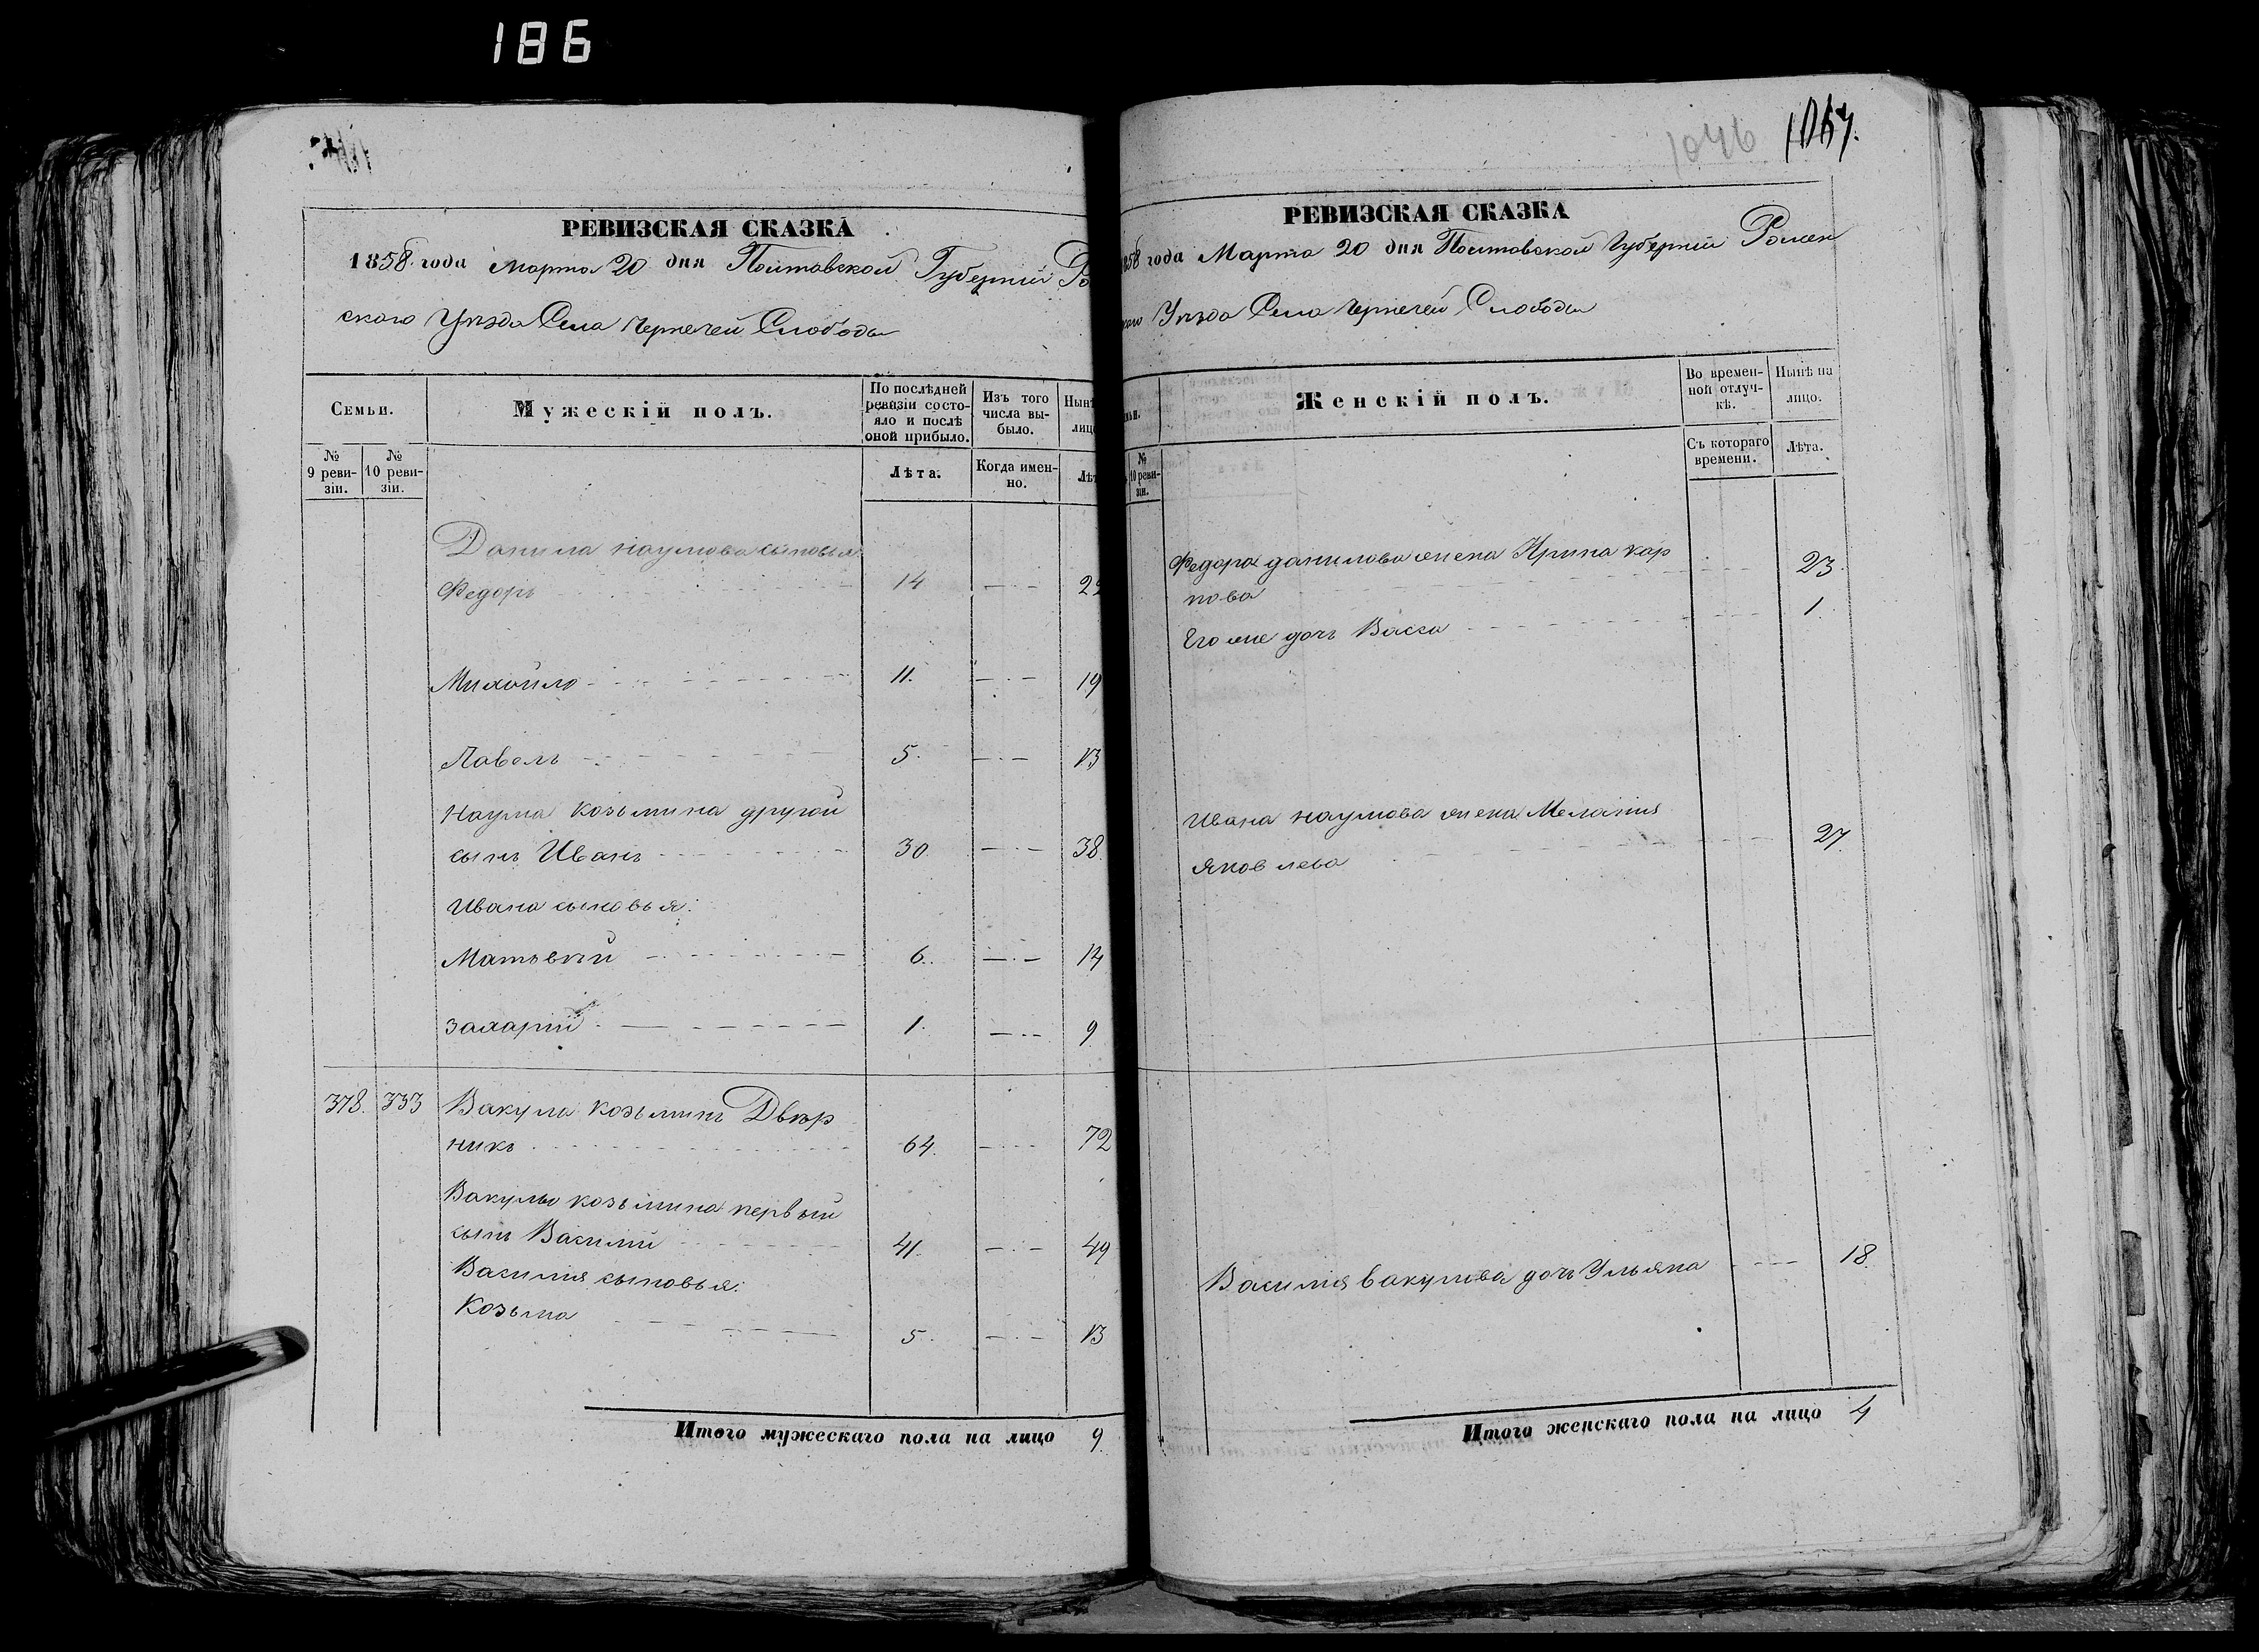 186
РЕВИЗСКАЯ СКАЗКА
1858 года Марта 20 дня Полтавской Губерніи Ро
скаго Уѣзда Села Чернечей Слободы
Семьи.
Мужескій полъ.
По послѣдней ревизіи состояло и послѣ оной прибыло.
Изъ того числа выбыло.
Нынѣ
лиц
№ 9 ревизіи.
№ 10 ревизіи.
Лѣта.
Когда именно.
Лѣт
Данила Наумова сыновья
Федоръ 14 22
Михайло 11. 19
Павелъ 5. 13
Наума Козьмина другой
сынъ Иванъ 30. 38
Ивана сыновья:
Матвѣй 6. 14
Захарій 1. 9
378. 333 Вакула Козьминъ Двѣр
никъ 64. 72
Вакулы Козьмина первый
сынъ Василий 41. 49
Василия сыновья:
Козьма 5. 13
Итого мужескаго пола на лицо 9.
1046 1047.
РЕВИЗСКАЯ СКАЗКА
1858 года Марта 20 дня Полтавской Губерніи Ромен
скаго Уѣзда Села Чернечей Слободы
Женскій полъ.
Во временной отлучкѣ.
Нынѣ на лицо.
№ 10 ревизіи.
Съ котораго времени.
Лѣта.
Федора Данилова жена Ирина Кар
пова 23.
Его же дочь Васса 1.
Ивана Наумова жена Меланія
Яковлева 27.
Василия Вакулова дочь Ульяна 18.
Итого женскаго пола на лицо 4